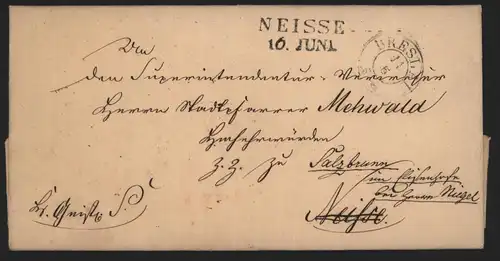 NEISSE
16. JUNI.
BRESLAU
An
den Superintendentur-Verweser
Herrn Stadtpfarrer Mehwald
Hochehrwürden
z. Z. zu Salzbrunn
im
bei Herrn Niegel
Neisse.